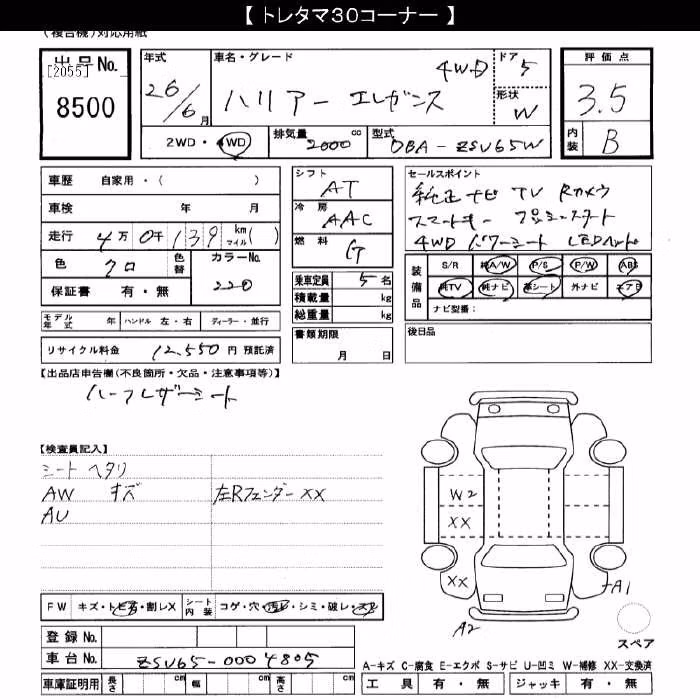 【 トレタマ30コーナー 】
(複合機)対応用紙
出品No.
[2055]
8500
年式
26/6月
車名・グレード
ハリアー エレガンス 4WD
ドア
5
形状
W
評価点
3.5
内装
B
2WD・4WD
排気量
2000 cc
型式
DBA-ZSU65W
車歴 自家用・( )
車検 年 月
走行 4万0千139 km マイル( )
色 クロ 色替 カラーNo. 220
保証書 有・無
シフト AT
冷房 AAC
燃料 G
乗車定員 5名
積載量 kg
総重量 kg
書類期限
月 日
セールスポイント
純正ナビ TV Rカメラ
スマートキー プッシュスタート
4WD パワーシート LEDライト
装備品
S/R 純A/W P/S P/W ABS
純TV 純ナビ 革シート 外ナビ エアB
ナビ型番:
後日品
モデル年式 年 ハンドル 左・右 ディーラー・並行
リサイクル料金 12,550 円 預託済
【出品店申告欄(不良箇所・欠品・注意事項等)】
ハーフレザーシート
【検査員記入】
シート ヘタリ
AW キズ 左Rフェンダー XX
AU
W2
XX
XX
A1
A2
スペア
FW キズ・トビ石・割レX シート内装 コゲ・穴・汚レ・シミ・破レ・スレ
登録No.
車台No. ZSU65-0004805
車庫証明用 長さ cm 幅 cm 高さ cm
A-キズ C-腐食 E-エクボ S-サビ U-凹ミ W-補修 XX-交換済
工具 有・無 ジャッキ 有・無